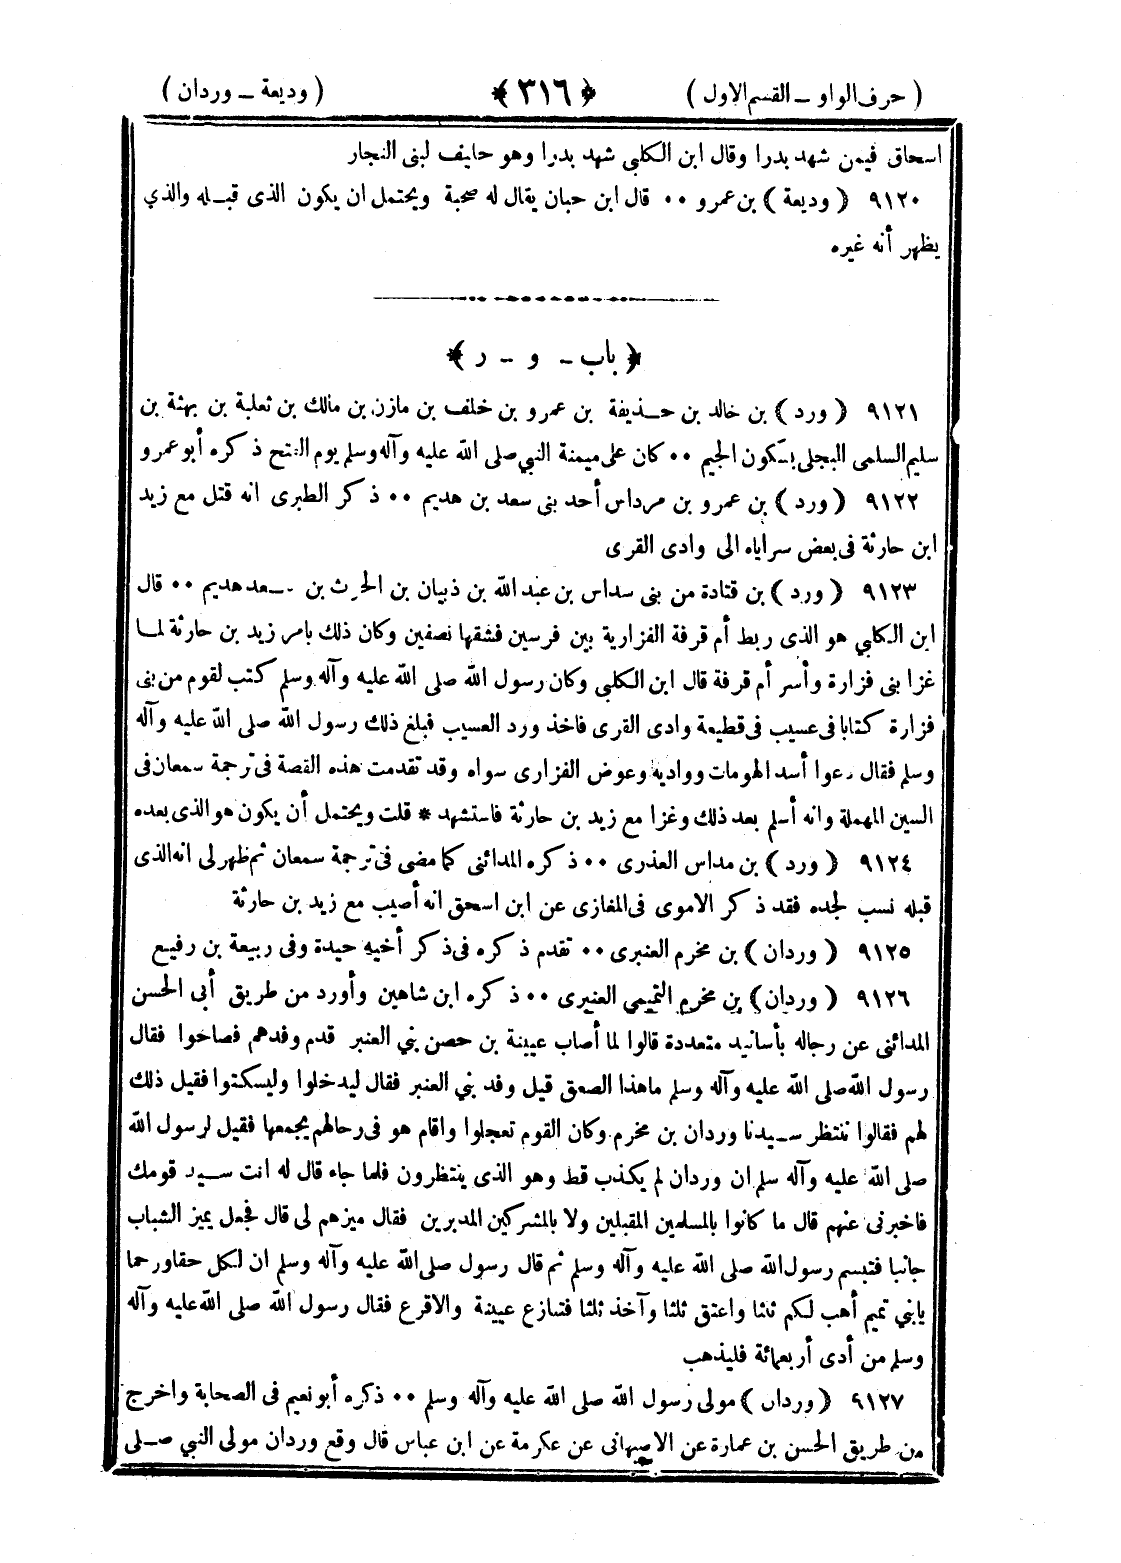 ( حرف الواو ـ القسم الاول ) ﴿ ٣١٦ ﴾ ( وديعة ـ وردان )
اسحاق فيمن شهد بدرا وقال ابن الكلبي شهد بدرا وهو حليف لبنى النجار
٩١٢٠ ( وديعة ) بن عمرو ٠٠ قال ابن حبان يقال له صحبة ويحتمل ان يكون الذى قبله والذي
يظهر أنه غيره
﴿ باب ـ و ـ ر ﴾
٩١٢١ ( ورد ) بن خالد بن حذيفة بن عمرو بن خلف بن مازن بن مالك بن ثعلبة بن بهثة بن
سليم السلمى البجلى بسكون الجيم ٠٠ كان على ميمنة النبي صلى الله عليه وآله وسلم يوم الفتح ذكره أبو عمرو
٩١٢٢ ( ورد ) بن عمرو بن مرداس أحد بنى سعد بن هديم ٠٠ ذكر الطبرى انه قتل مع زيد
ابن حارثة فى بعض سراياه الى وادى القرى
٩١٢٣ ( ورد ) بن قتادة من بنى سداس بن عبد الله بن ذبيان بن الحرث بن سعد هديم ٠٠ قال
ابن الكلبي هو الذى ربط أم قرفة الفزارية بين فرسين فشقها نصفين وكان ذلك بامر زيد بن حارثة لما
غزا بنى فزارة وأسر أم قرفة قال ابن الكلبي وكان رسول الله صلى الله عليه وآله وسلم كتب لقوم من بنى
فزارة كتابا فى عسيب فى قطيعة وادى القرى فاخذ ورد العسيب فبلغ ذلك رسول الله صلى الله عليه وآله
وسلم فقال دعوا أسد الهومات وواديه وعوض الفزارى سواه وقد تقدمت هذه القصة فى ترجمة سمعان فى
السين المهملة وانه أسلم بعد ذلك وغزا مع زيد بن حارثة فاستشهد * قلت ويحتمل أن يكون هو الذى بعده
٩١٢٤ ( ورد ) بن مداس العذرى ٠٠ ذكره المدائنى كما مضى فى ترجمة سمعان ثم ظهر لى انه الذى
قبله نسب لجده فقد ذكر الاموى فى المغازى عن ابن اسحق انه أصيب مع زيد بن حارثة
٩١٢٥ ( وردان ) بن مخرم العنبرى ٠٠ تقدم ذكره فى ذكر أخيه حيدة وفى ربيعة بن رفيع
٩١٢٦ ( وردان ) بن مخرم التميمي العنبرى ٠٠ ذكره ابن شاهين وأورد من طريق أبي الحسن
المدائنى عن رجاله بأسانيد متعددة قالوا لما أصاب عيينة بن حصن بني العنبر قدم وفدهم فصاحوا فقال
رسول الله صلى الله عليه وآله وسلم ماهذا الصعق قيل وفد بني العنبر فقال ليدخلوا وليسكتوا فقيل ذلك
لهم فقالوا ننتظر سيدنا وردان بن مخرم وكان القوم تعجلوا واقام هو فى رحالهم يجمعها فقيل لرسول الله
صلى الله عليه وآله سلم ان وردان لم يكذب قط وهو الذى ينتظرون فلما جاء قال له انت سيد قومك
فاخبرنى عنهم قال ما كانوا بالمسلمين المقبلين ولا بالمشركين المدبرين فقال ميزهم لى قال فجعل يميز الشباب
جانبا فتبسم رسول الله صلى الله عليه وآله وسلم ثم قال رسول صلى الله عليه وآله وسلم ان لكل حقاورحما
يابني تميم أهب لكم ثلثا واعتق ثلثا وآخذ ثلثا فتنازع عيينة والاقرع فقال رسول الله صلى الله عليه وآله
وسلم من أدى أربعمائة فليذهب
٩١٢٧ ( وردان ) مولى رسول الله صلى الله عليه وآله وسلم ٠٠ ذكره أبو نعيم فى الصحابة واخرج
من طريق الحسن بن عمارة عن الاصبهانى عن عكرمة عن ابن عباس قال وقع وردان مولى النبي صلى